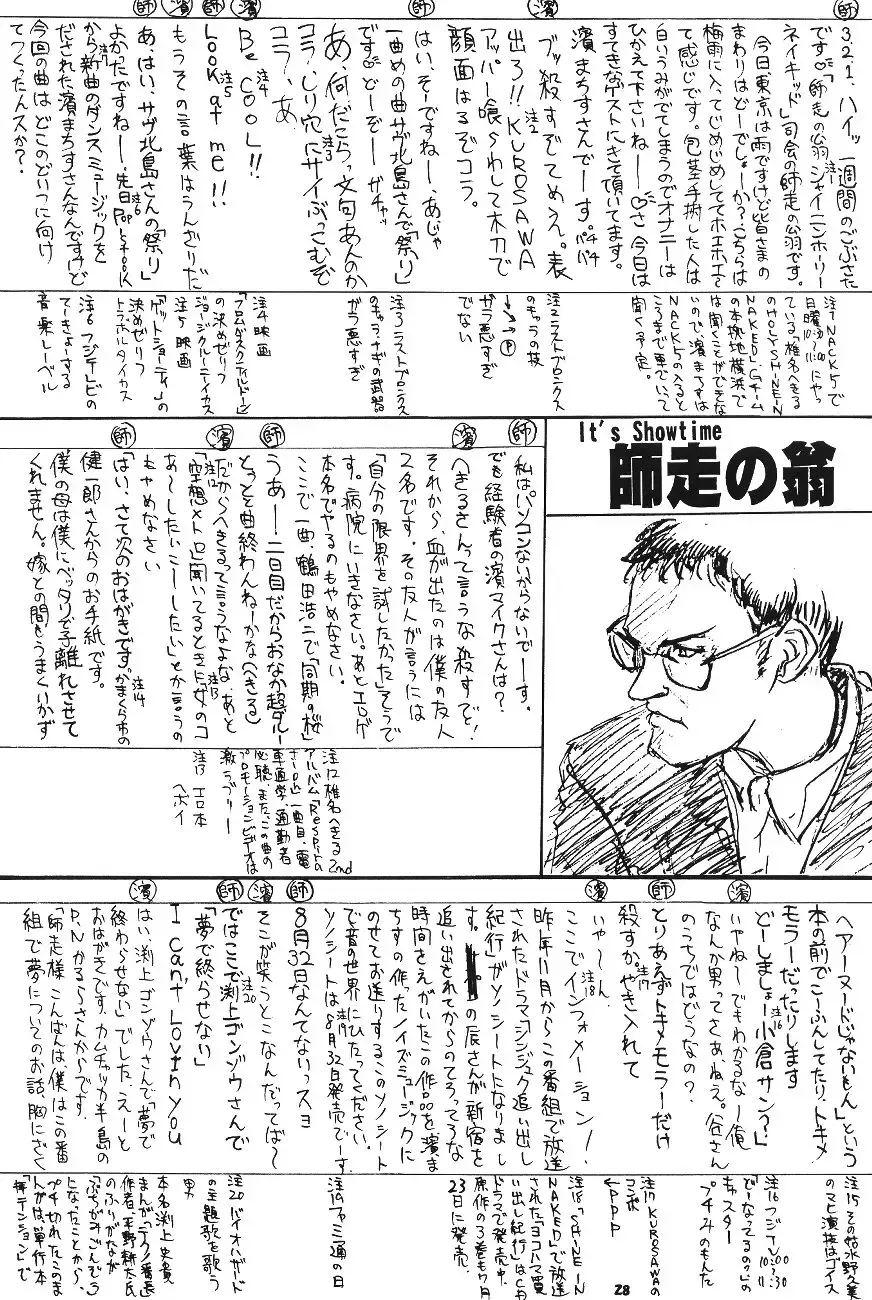 師
3,2,1、ハイッ 一週間のごぶさた
です♡「師走の翁 注1 シャイニンホーリー
ネイキッド」司会の師走の翁です。
今日東京は雨ですけど皆さまの
まわりはどーでしょーか?こちらは
梅雨に入ってじめじめしててホエホエ〜
て感じです。包茎手術した人は
白いうみがでてしまうのでオナニーは
ひかえて下さいねー♡さ今日は
すてきなゲストにきて頂いてます。
濱まちすさんでーす。パチパチ
濱
ブッ殺すぞてめえ。表
出ろ!!KUROSAWA 注2
アッパー喰らわして木刀で
顔面はるぞコラ。
師
はい、そーですねー、あじゃ
一曲めの曲サヴ北島さんで「祭り」
ですどーぞーガチャッ
濱
あ、何だこらっ文句あんのか 注3
コラ、しり穴にサイぶっこむぞ
コラ、あ
Be COOL!! 注4
師
Look at me!! 注5
濱
もうその言葉はうんざりだ
師
あ、はい、サヴ北島さんの「祭り」
よかったですねー、先日Popstock 注6
から新曲のダンスミュージックを
だされた濱まちすさんなんですけど
今回の曲はどこのどいつに向け
てつくったんスか?
注1 NACK5で
日曜10:30〜11:00にやっ
ている椎名へきる
のHOLY SHINE IN
NAKED!Gチーム
の本拠地横浜で
は聞くことができな
いので、濱まちすは
NACK5の入ると
ころまで車でいって
聞く予定。
注2 ラストブロンクス
のキャラの技
↓↘→Ⓟ
ガラ悪すぎ
でない
注3 ラストブロンクス
のキャラナギの武器
ガラ悪すぎ
注4 映画
「フロムダスクティルドーン」
の決めゼリフ
ジョージクルーニイカス
注5 映画
「ゲットショーティ」の
決めゼリフ
トラボルタイカス
注6 フジテレビの
てーきょーする
音楽レーベル
It's Showtime
師走の翁
師
私はパソコンないからないでーす。
でも経験者の濱マイクさんは?
濱
へきるさんって言うな殺すぞ!
それから、血が出たのは僕の友人
2名です。その友人が言うには
「自分の限界を試したかった」そうで
す。病院にいきなさい。あとエロゲ
本名でやるのもやめなさい。
ここで一曲、鶴田浩二で「同期の桜」
師
うあー!二日目だからおなか超ダルー
とっとと曲終わんねーかな(へきる)
濱
だからへきるって言うなよな。あと
「空想メトロ」聞いてるときに女のコ 注12 注13
あ〜したいこーしたい」とか言うの
もやめなさい
師
「はい、さて次のおはがきです。かまくら市の 注14
健一郎さんからのお手紙です。
僕の母は僕にベッタリで子離れさせて
くれません。嫁との間もうまくいかず
注12 椎名へきる2nd
アルバム「Respiration」
一曲目、電
車通学、通勤者
必聴。また、この曲の
プロモーションビデオは
激ラブリー
注13 エロ本
へボイ
ヘアーヌードじゃないもん」という
本の前でこーふんしてたり、トキメ
モラーだったりします
どーしましょー小倉サン?」 注16
濱
いやねーでもわかるなー俺
なんか男ってさぁ、ねえ。谷さん
のうちではどうなの?
師
とりあえずトキメモラーだけ
殺すか。やき入れて 注17
濱
いゃーん
ここでインフォメーション!
昨年11月からこの番組で放送
されたドラマ「シンジュク追い出し 注18
紀行」がソノシートになりまし
た。の辰さんが新宿を
追い出されてからのてろってろな
時間をえがいたこの作品を濱ま
ちすの作ったノイズミュージックに
のせてお送りするこのソノシート
で音の世界にひたってください。
ソノシートは8月32日発売でーす 注19
師
8月32日なんてないっスョ
濱
そこが笑うとこなんだってば〜
師
ではここで渕上ゴンゾウさんで 注20
「夢で終らせない」
I can't Lovin you
濱
はい、渕上ゴンゾウさんで「夢で
終わらせない」でした。えーと
おはがきです、カムチャッカ半島の
P.Nかるらさんからです。
「師走様こんばんは僕はこの番
組で夢についてのお話、胸にざく
注15 その姑水野久美
のマヒ演技はゴイス
注16 フジTV 10:00〜11:30
「どーなってるのっ!」の
キャスター
プチみのもんた
注17 KUROSAWAの
コンボ
←PPP
注18 「SHINE IN
NAKED」で放送
された「ヨコハマ買
い出し紀行」はCD
ドラマで発売中。
原作の3巻も7月
23日に発売。
注19 ファミ通の日
注20 バイオハザード
の主題歌を歌う
男
本名渕上史貴
まんが「テクノ番長」
作者、平野耕太氏
のふりがなが
「ふちがみごんぞう」
となったことから、
プチ切れたこのま
んがは、単行本
「拝テンション」で
28